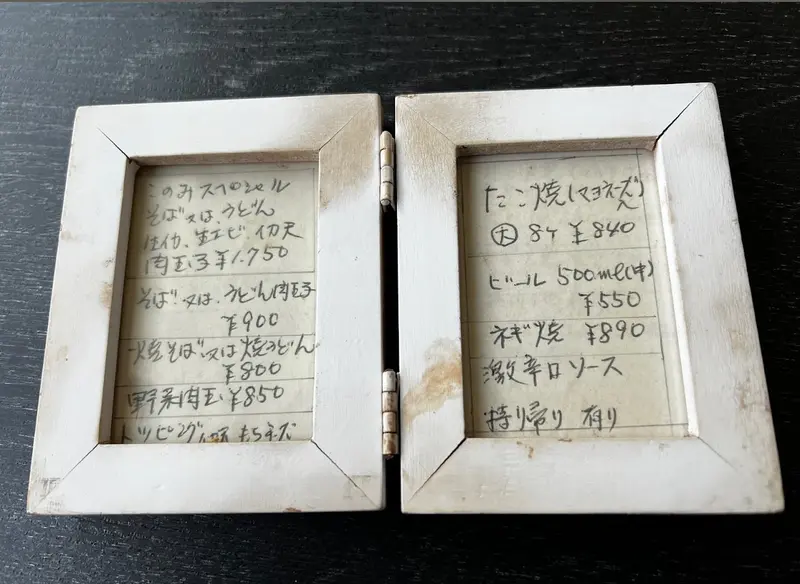 このみスペシャル
そば又は、うどん
生イカ、生エビ、イカ天
肉玉子¥1.750
そば又は、うどん肉玉子
¥900
焼そば又は焼うどん
¥800
野菜肉玉¥850
トッピング
たこ焼(マヨネーズ入)
大 8ケ ¥840
ビール 500ml(中)
¥550
ネギ焼 ¥890
激辛口ソース
持り帰り 有り